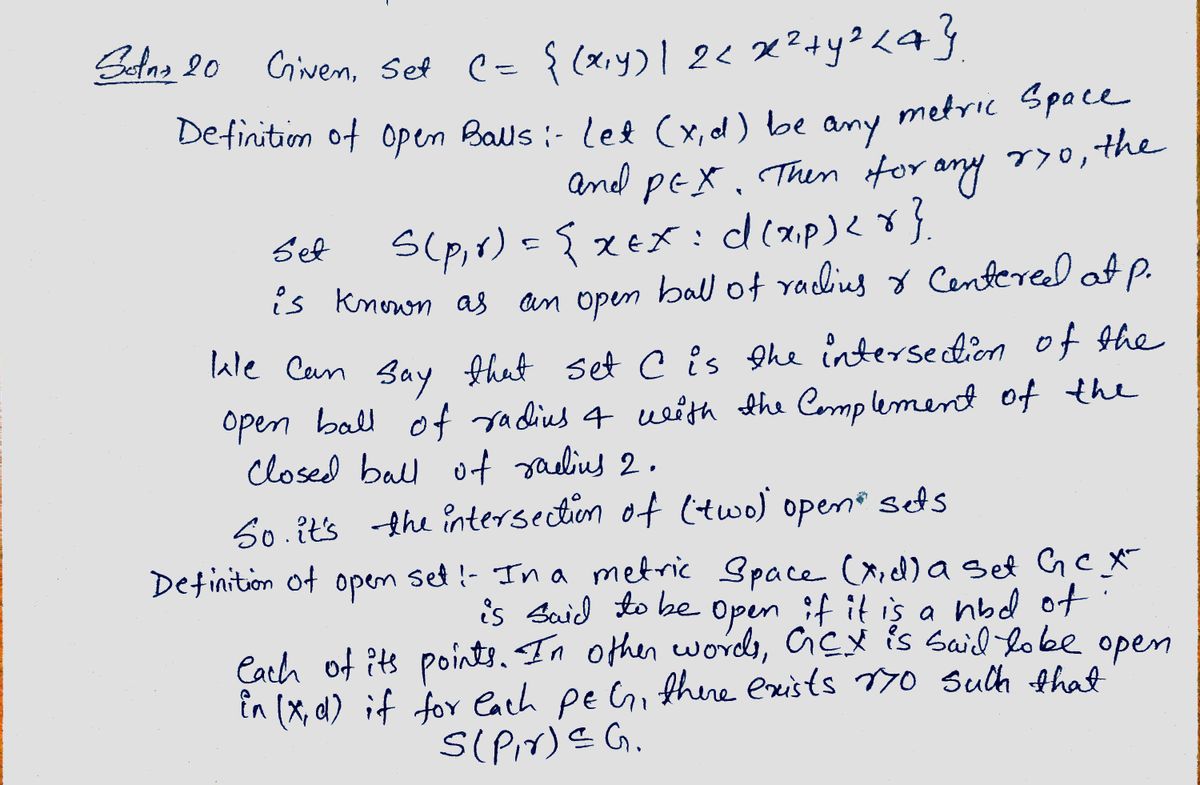 Solns 20 Given, Set C = { (x,y) | 2 < x²+y² < 4 }.
Definition of Open Balls :- let (X,d) be any metric Space
and p∈X. Then for any r>0, the
Set S(p,r) = { x∈X : d(x,p) < r }.
is Known as an open ball of radius r Centered at p.
We Can Say that set C is the intersection of the
open ball of radius 4 with the Complement of the
Closed ball of radius 2.
So. it's the intersection of (two) open sets
Definition of open set :- In a metric Space (X,d) a set G⊂X
is Said to be open if it is a nbd of
Each of its points. In other words, G⊆X is Said to be open
in (X,d) if for Each p∈G, there Exists r>0 Such that
S(P,r) ⊆ G.